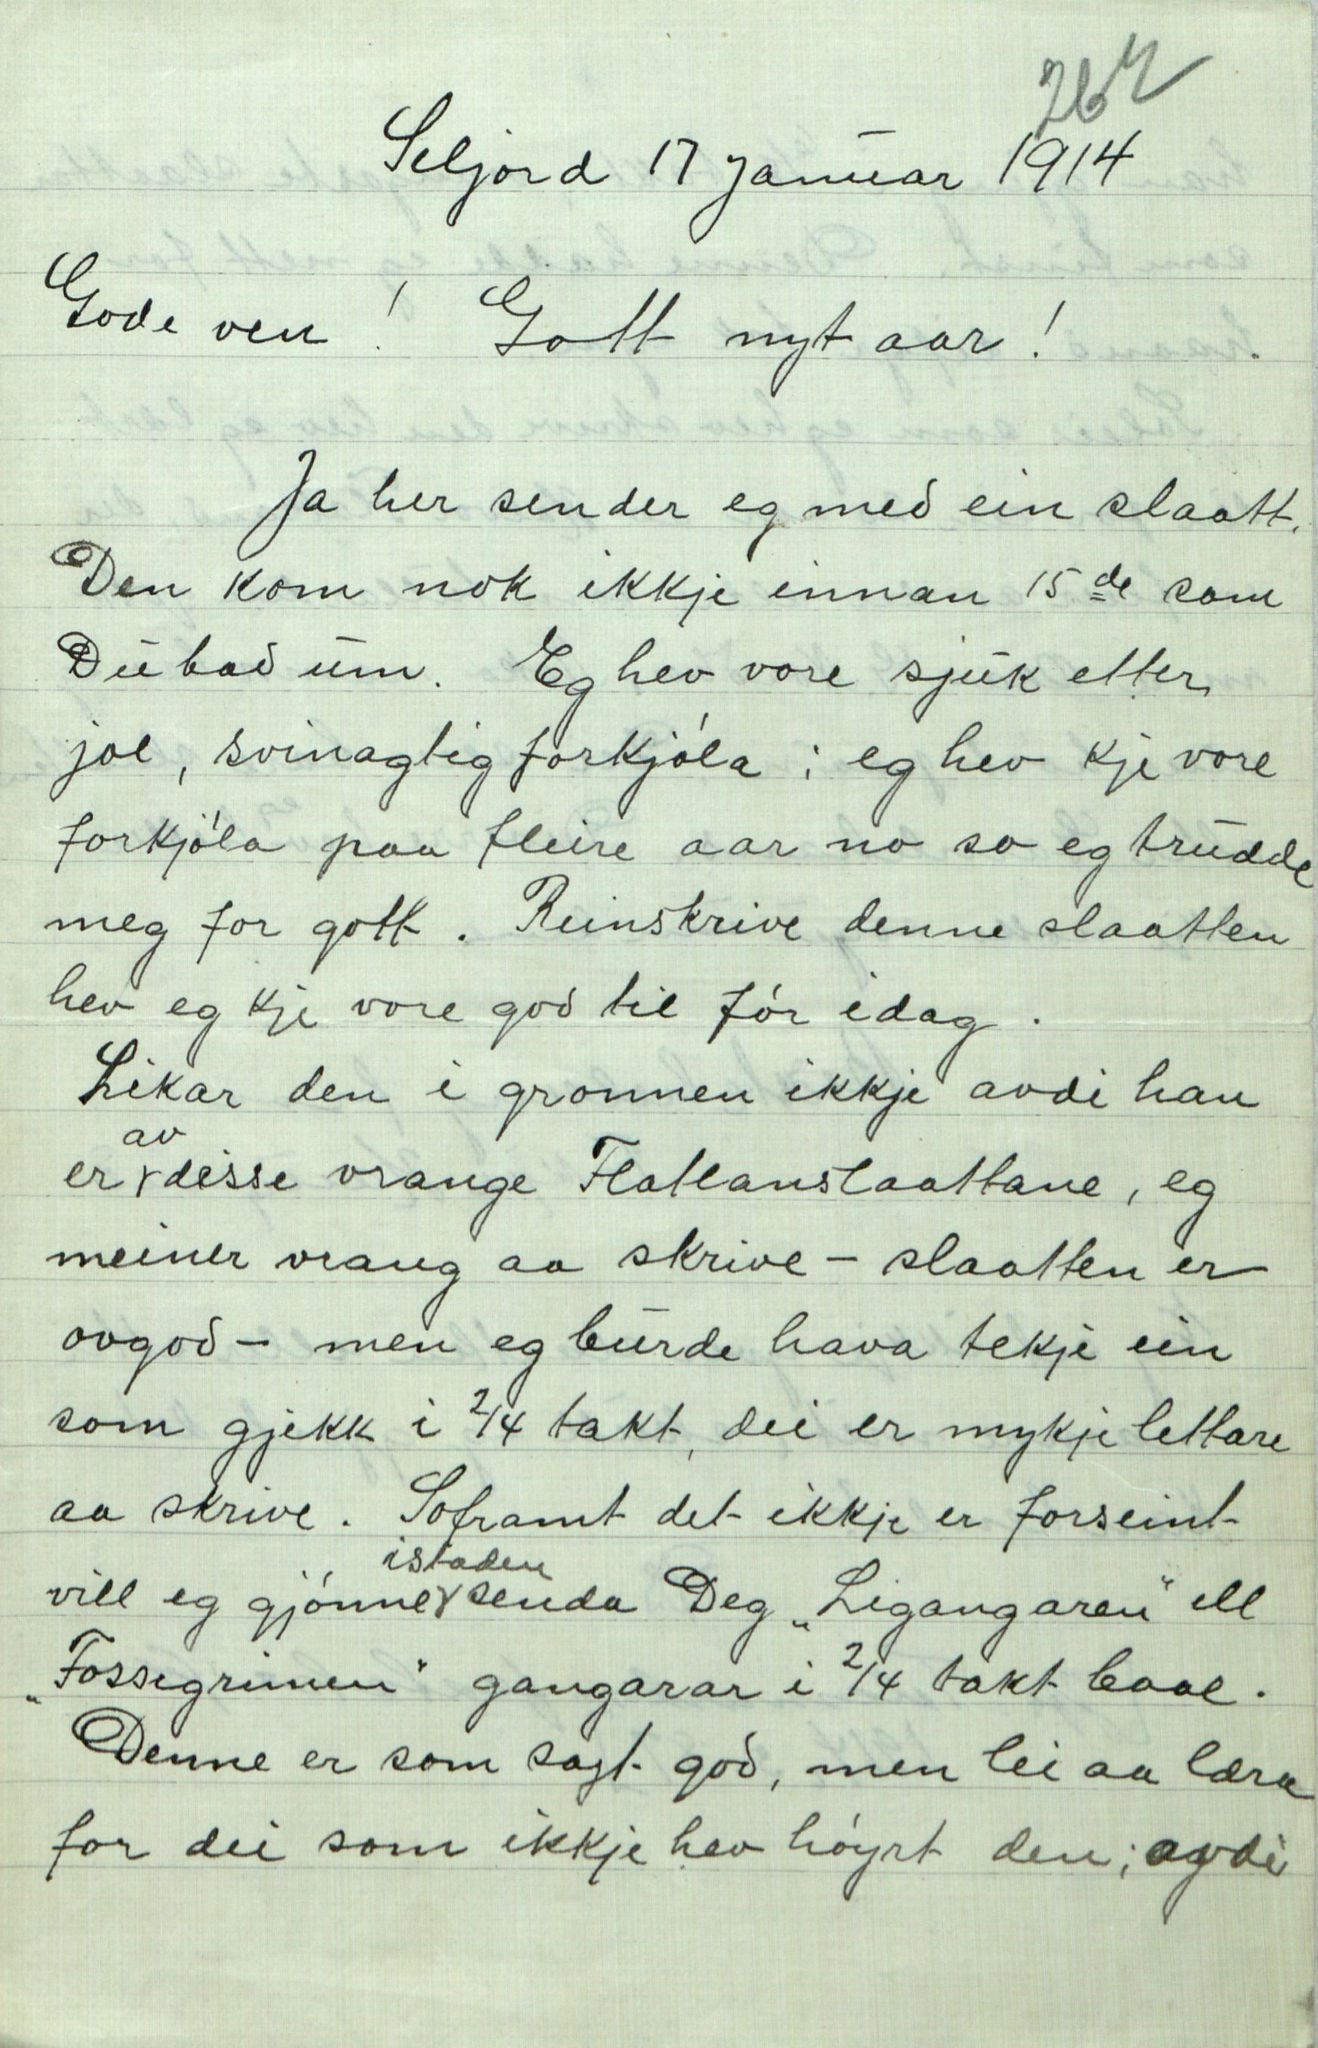 267
Seljord 17 Januar 1914
Gode ven! Gott nyt aar!
Ja her sender eg med ein slaatt.
Den kom nok ikkje innan 15de som
Du bad um. Eg hev vore sjuk etter
jol, svinagtig forkjóla; eg hev kje vore
forkjóla paa fleire aar no so eg trudde
meg for gott. Reinskrive denne slaatten
hev eg kje vore god til fór idag.
Likar den i gronnen ikkje avdi han
av
er disse vrange Flatlanslaattane, eg
meiner vrang aa skrive – slaatten er
ovgod – men eg burde hava tekje ein
som gjekk i 2/4 takt, dei er mykje lettare
aa skrive. Soframt det ikkje er forseint
istaden
vill eg gjónne senda Deg „Ligangaren" ell
„Fossegrimen" gangarar i 2/4 takt baae.
Denne er som sagt god, men lei aa læra
for dei som ikkje hev hóyrt den; avdi